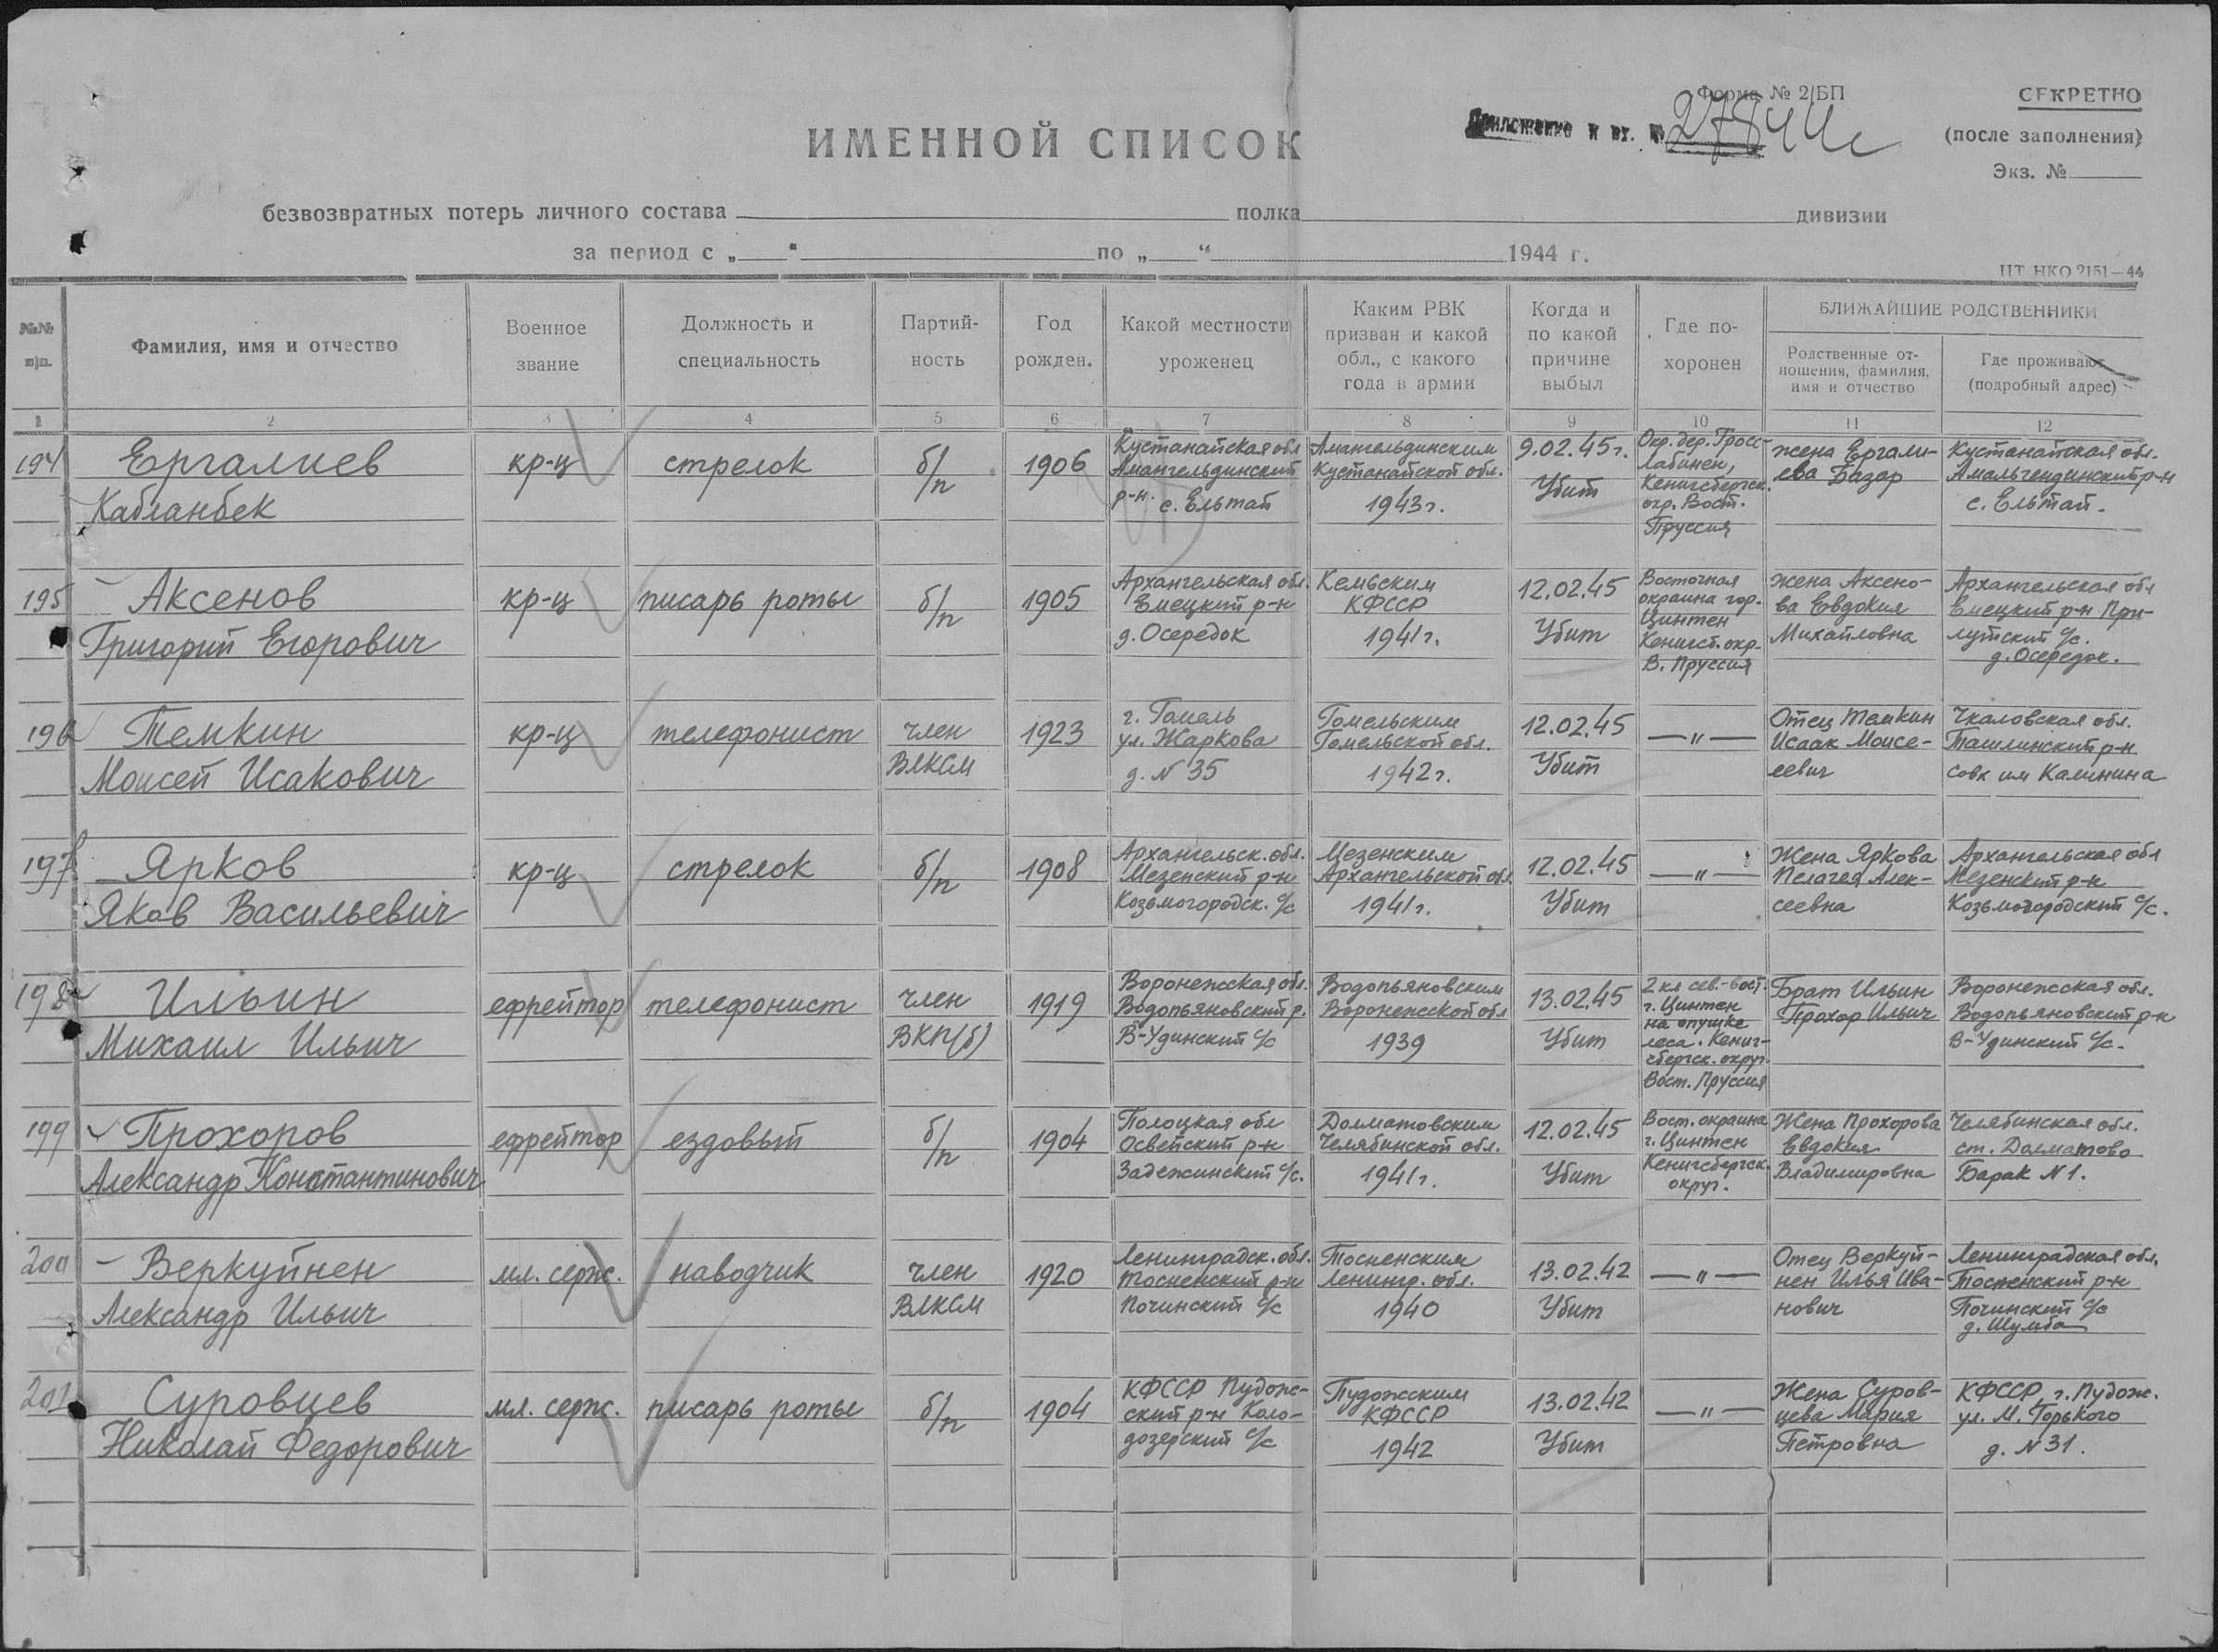 Форма № 2/БП
СЕКРЕТНО
Приложение к вх. №
(после заполнения)
Экз. №
ИМЕННОЙ СПИСОК
безвозвратных потерь личного состава полка дивизии
за период с „ “ по „ “ 1944 г.
ЦТ НКО 2151—44
№№ п/п.
Фамилия, имя и отчество
Военное звание
Должность и специальность
Партий-
ность
Год рожден.
Какой местности уроженец
Каким РВК
призван и какой
обл., с какого
года в армии
Когда и
по какой
причине
выбыл
Где по-
хоронен
БЛИЖАЙШИЕ РОДСТВЕННИКИ
Родственные от-
ношения, фамилия,
имя и отчество
Где проживают
(подробный адрес)
1 2 3 4 5 6 7 8 9 10 11 12
194
Ергалиев
Кабланбек
кр-ц
стрелок
б/п
1906
Кустанайская обл
Амангельдинский
р-н. с. Ельтай
Амангельдинским
Кустанайской обл.
1943г.
9.02.45г.
Убит
Окр. дер. Гросс-
Лабинен,
Кенигсбергск.
окр. Вост.
Пруссия
жена Ергали-
ева Базар
Кустанайская обл.
Амальгендинский р-н
с. Ельтай.
195
Аксенов
Григорий Егорович
кр-ц
писарь роты
б/п
1905
Архангельская обл.
Емецкий р-н
д. Осередок
Кемьским
КФССР
1941г.
12.02.45
Убит
Восточная
окраина гор.
Цинтен
Кенигсб. окр.
В. Пруссия
жена Аксено-
ва Евдокия
Михайловна
Архангельская обл
Емецкий р-н При-
лутский с/с.
д. Осередок.
196
Темкин
Моисей Исакович
кр-ц
телефонист
член
ВЛКСМ
1923
г. Гомель
ул. Жаркова
д. N 35
Гомельским
Гомельской обл.
1942г.
12.02.45
Убит
—"—
Отец Темкин
Исаак Моисе-
еевич
Чкаловская обл.
Ташлинский р-н
Совх им Калинина
197
Ярков
Яков Васильевич
кр-ц
стрелок
б/п
1908
Архангельск. обл.
Мезенский р-н
Козьмогородск. с/с
Мезенским
Архангельской обл
1941г.
12.02.45
Убит
—"—
Жена Яркова
Пелагея Алек-
сеевна
Архангельская обл
Мезенский р-н
Козьмогородский с/с.
198
Ильин
Михаил Ильич
ефрейтор
телефонист
член
ВКП(б)
1919
Воронежская обл.
Водопьяновский р.
В-Удинский с/с
Водопьяновским
Воронежской обл
1939
13.02.45
Убит
2 кл сев.-вост.
г. Цинтен
на опушке
леса. Кениг-
сбергск. округ.
Вост. Пруссия
Брат Ильин
Прохор Ильич
Воронежская обл.
Водопьяновский р-н
В-Удинский с/с.
199
Прохоров
Александр Константинович
ефрейтор
ездовый
б/п
1904
Полоцкая обл
Освейский р-н
Задежинский с/с.
Долматовским
Челябинской обл.
1941г.
12.02.45
Убит
Вост. окраина
г. Цинтен
Кенигсбергск.
округ.
Жена Прохорова
Евдокия
Владимировна
Челябинская обл.
ст. Долматово
Барак N 1.
200
Веркуйнен
Александр Ильич
мл. серж.
наводчик
член
ВЛКСМ
1920
Ленинградск. обл.
Тосненский р-н
Починский с/с
Тосненским
Ленингр. обл.
1940
13.02.42
Убит
—"—
Отец Веркуй-
нен Илья Ива-
нович
Ленинградская обл.
Тосненский р-н
Починский с/с
д. Шумба
201
Суровцев
Николай Федорович
мл. серж.
писарь роты
б/п
1904
КФССР Пудож-
ский р-н Коло-
дозерский с/с
Пудожским
КФССР
1942
13.02.42
Убит
—"—
Жена Суров-
цева Мария
Петровна
КФССР, г. Пудож.
ул. М. Горького
д. N 31.